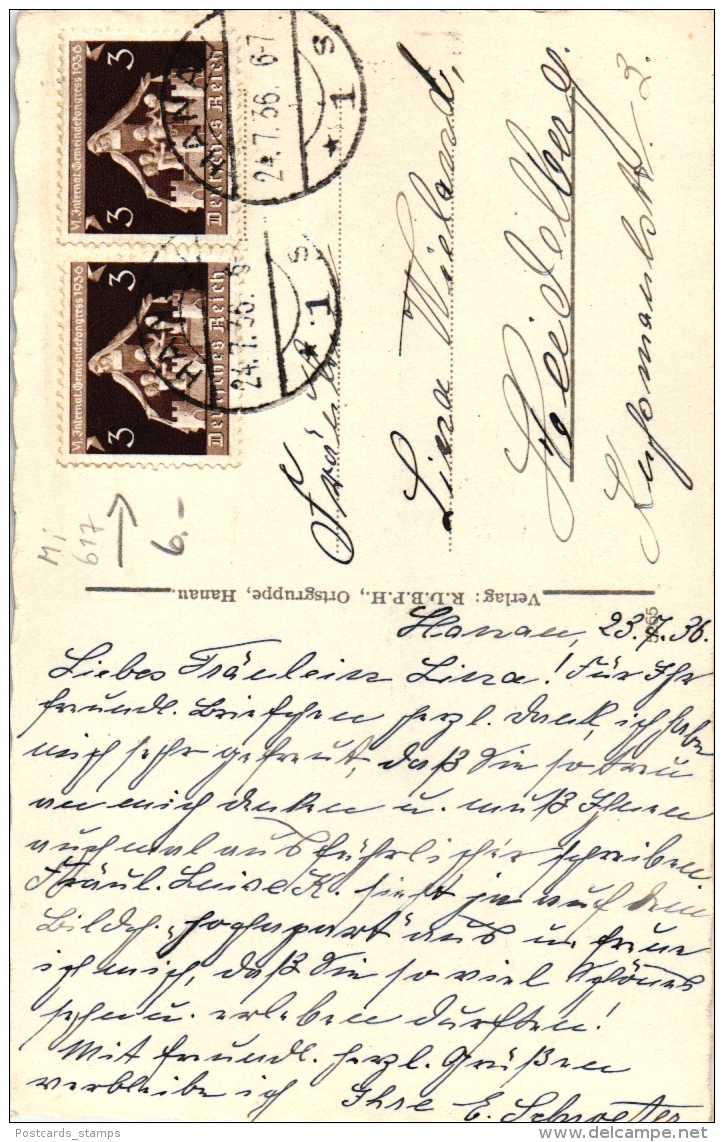 VI. Internat. Gemeindekongress 1936
3
3
Deutsches Reich
VI. Internat. Gemeindekongress 1936
3
3
Deutsches Reich
24.7.36. 6-7
1 s
HANAU
24.7.36.
1 s
Mi
617
6.-
Fräulein
Lina Wieland,
Heidelberg.
Verlag: R.D.B.P.H., Ortsgruppe, Hanau.
5265
Hanau, 23.7.36.
Liebes Fräulein Lina! Für Ihr
freundl. Briefchen herzl. Dank, ich habe
mich sehr gefreut, daß Sie so treu
an mich denken u. muß Ihnen
auch mal ausführlicher schreiben
Fräul. Luise K. sieht ja auf dem
Bildch. aus u. freue
ich mich, daß Sie so viel Schönes
sehn u. erleben durften!
Mit freundl. herzl. Grüßen
verbleibe ich Ihre E. Schroeter
Postcards_stamps
© DELCAMPE.NET